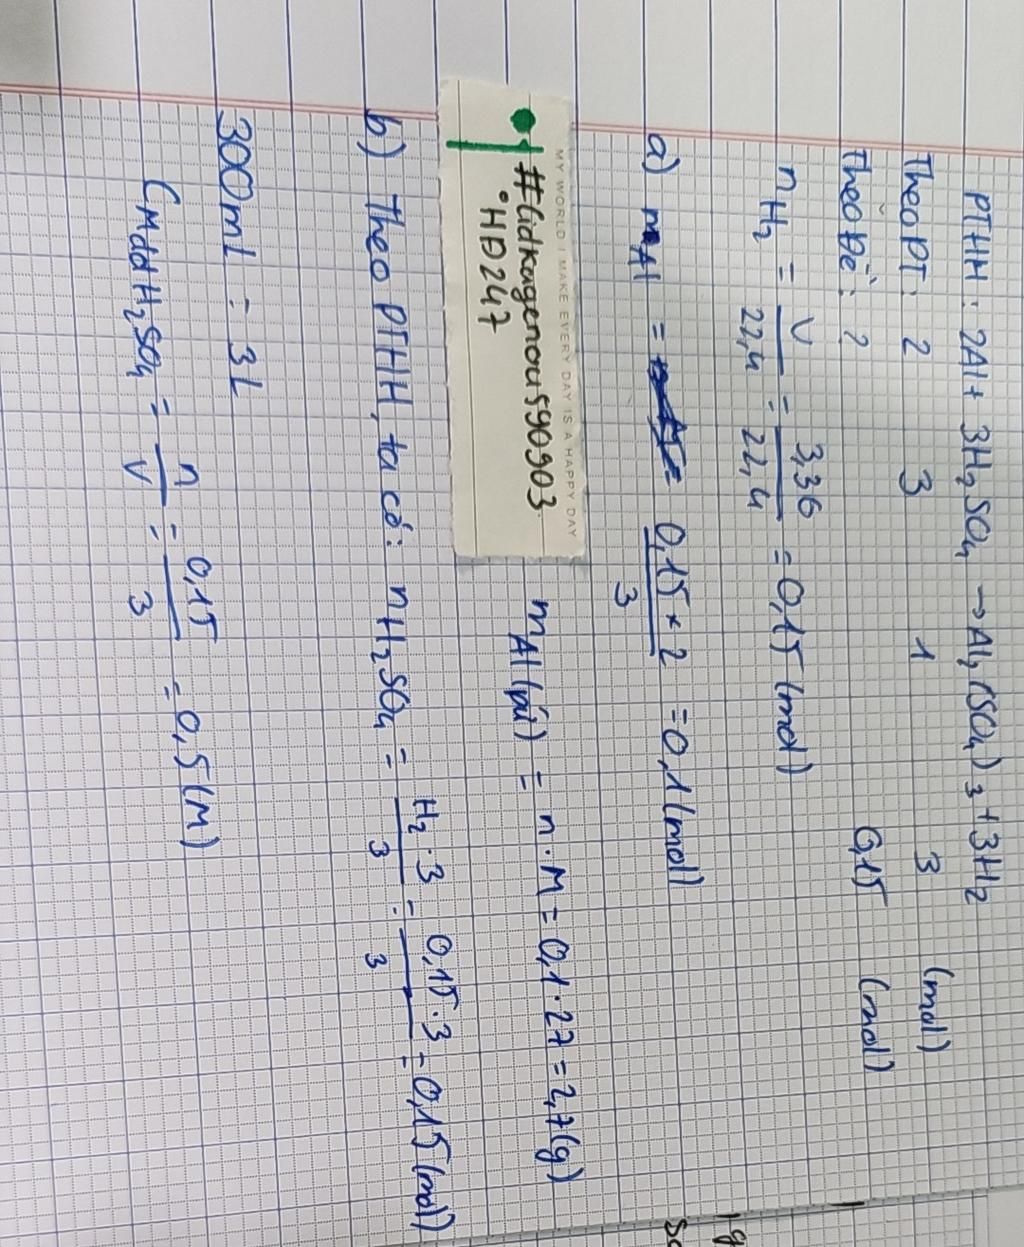 PTHH : 2Al + 3H₂SO₄ → Al₂(SO₄)₃ + 3H₂
Theo PT: 2 3 1 3 (mol)
Theo Đề: ? 0,15 (mol)
nH₂ = V/22,4 = 3,36/22,4 = 0,15 (mol)
a) mAl = 0,15 × 2/3 = 0,1 (mol)
MY WORLD I MAKE EVERY DAY IS A HAPPY DAY
#lidkagenou590903
HĐ247
mAl (pứ) = n . M = 0,1 . 27 = 2,7 (g)
b) Theo PTHH, ta có: nH₂SO₄ = H₂ . 3/3 = 0,15 . 3/3 = 0,15 (mol)
300ml = 3L
CMddH₂SO₄ = n/V = 0,15/3 = 0,5 (M)